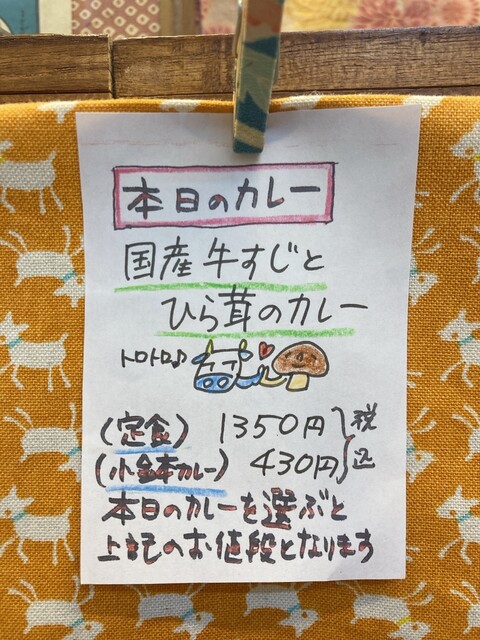 本日のカレー
国産牛すじと
ひら茸のカレー
トロトロ♪
(定食) 1350円
(小鉢本カレー) 430円
税込
本日のカレーを選ぶと
上記のお値段となります